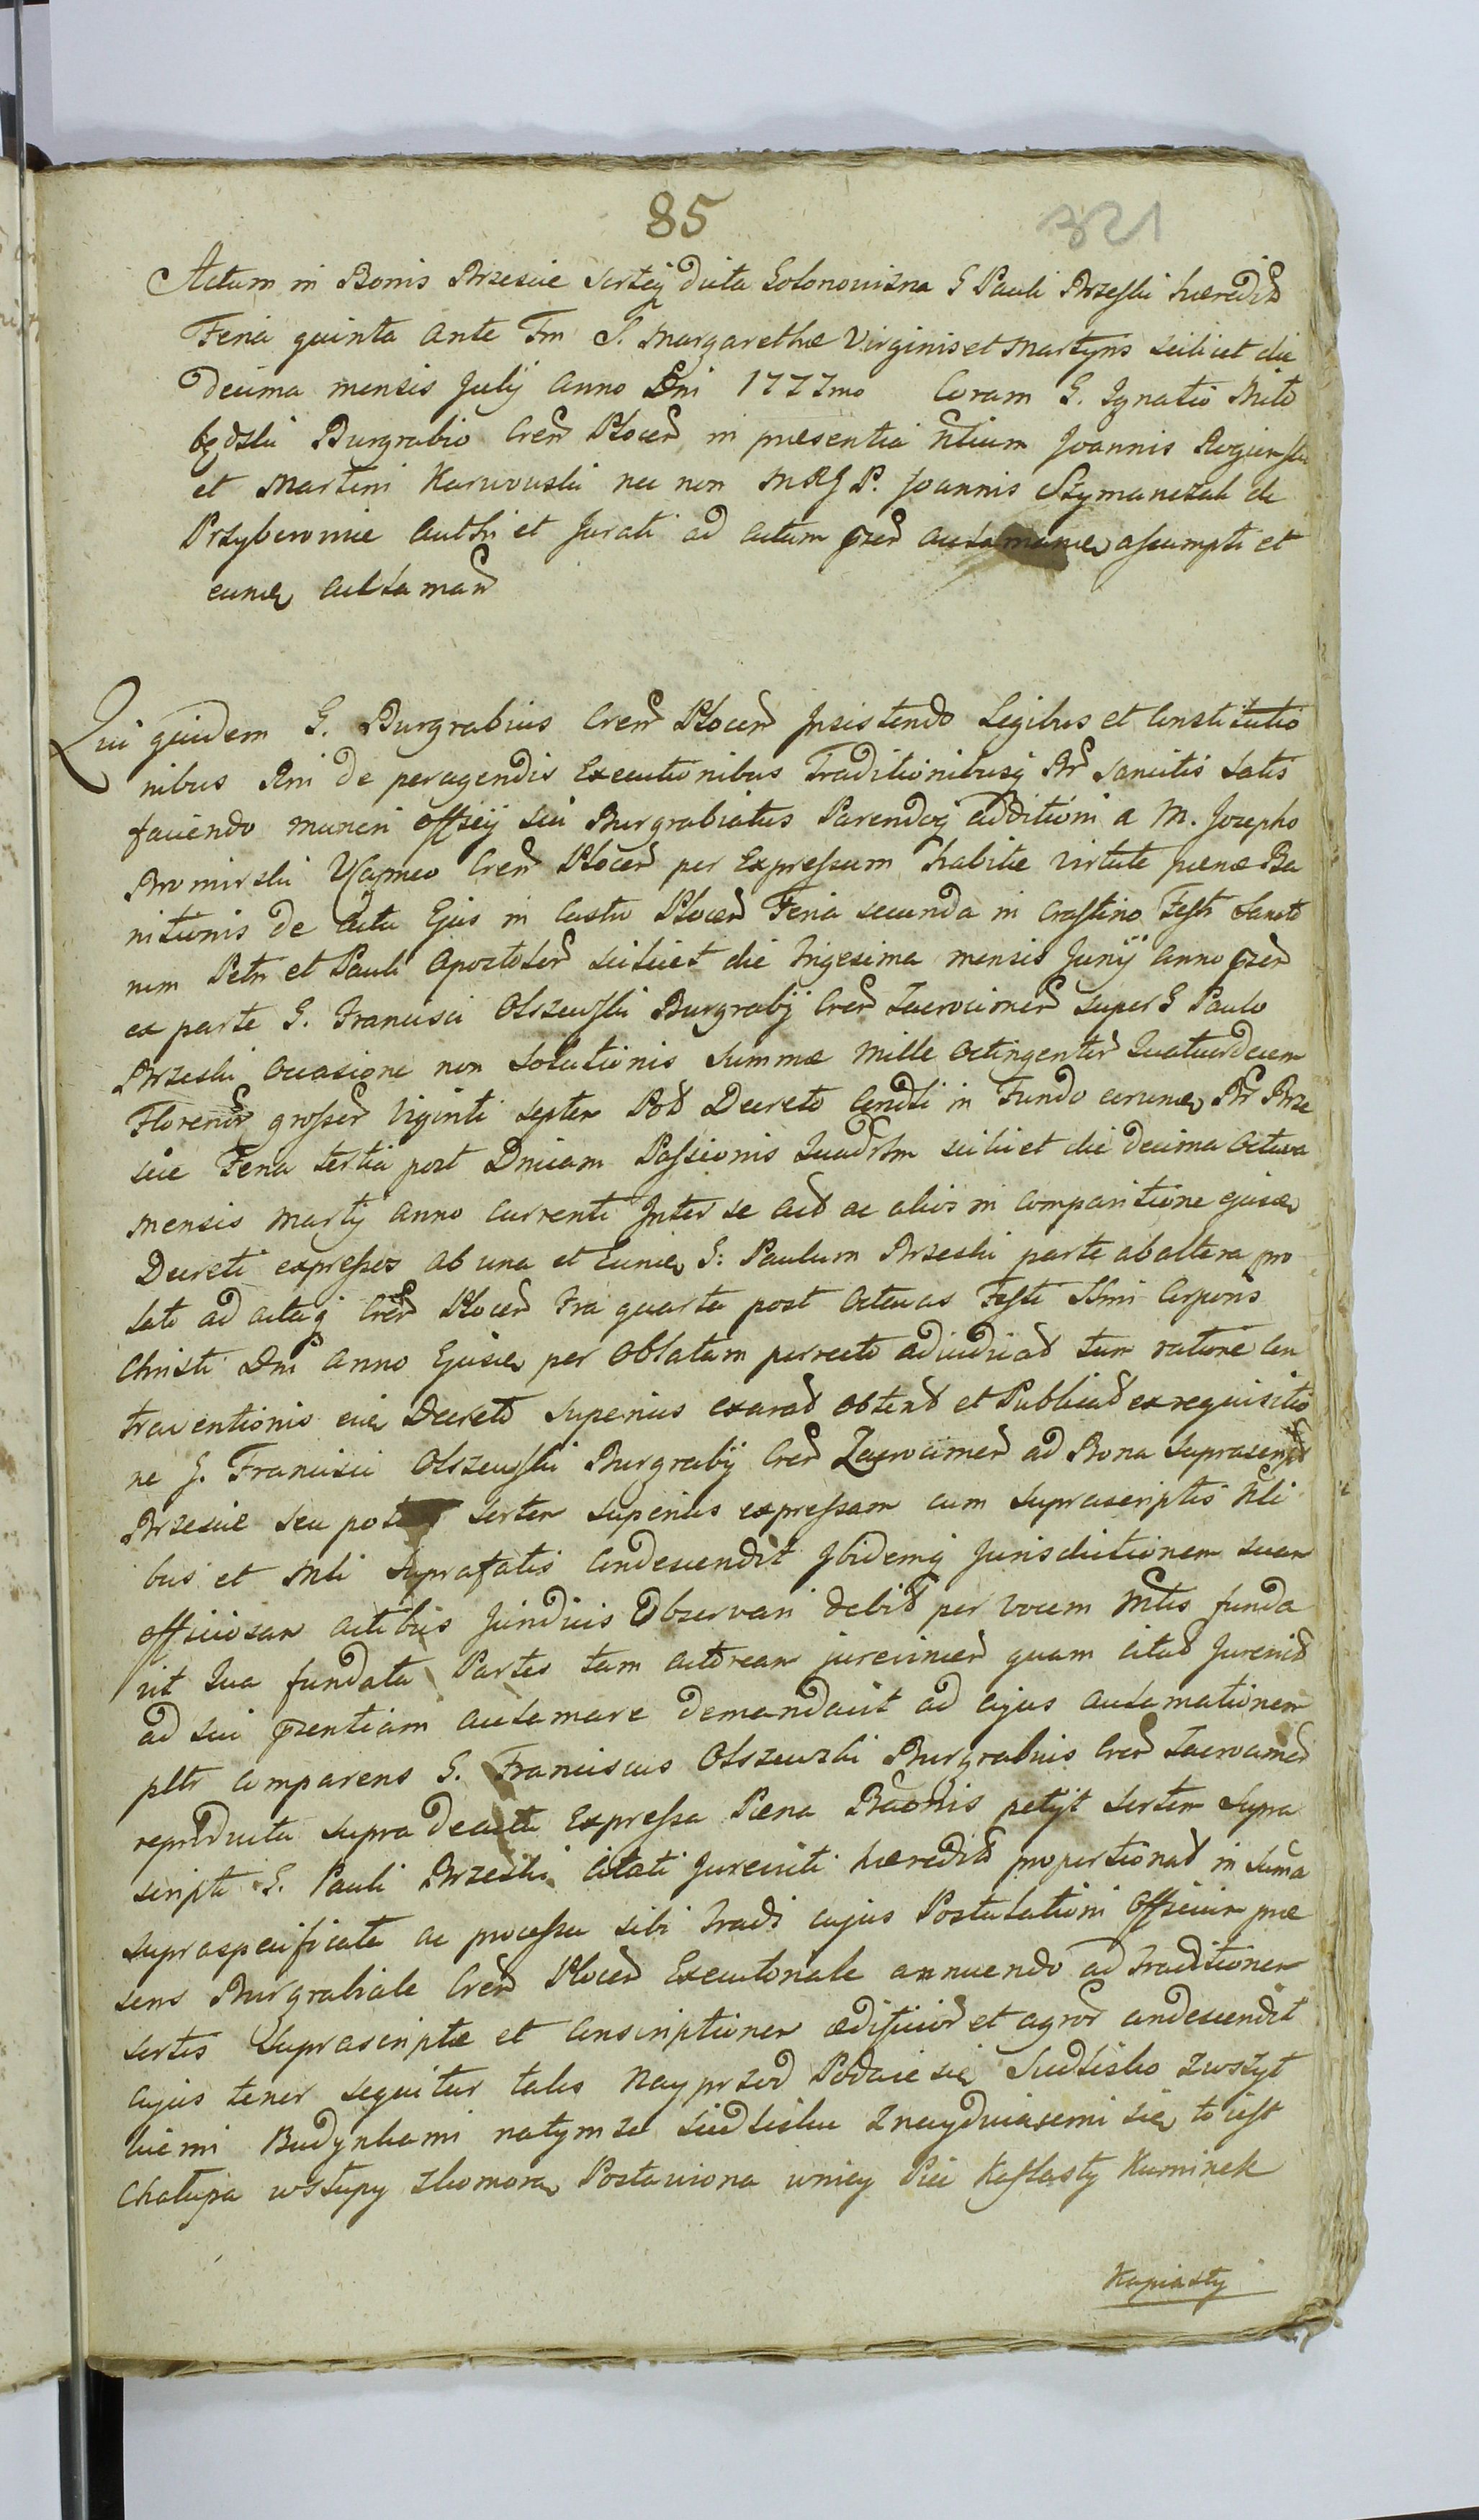 85
321
Actum in Bonis Brzescie sorteq dicta Golonowizna G Pauli Brzeski hæredit
Feria quinta ante Fm S. Margarethæ Virginis et Martyris scilicet die
decima mensis Julij Anno Dni 1777mo Coram G. Ignatio Mito
będzki Burgrabio Cren Plocen in præsentia Nlium Joannis
et Martini Karwowski nec non Mtrlj P. Joannis Szymanczak de
Przyborowie Authi et Jurati ad actum pnr assumpti et
eunde acclaman
Qui quidem G. Burgrabius Cren Plocen Insistendo Legibus et Constitutio
nibus Rni de peragendis Executionibus Traditionibusq Br sancitis satis
faciendo muneri officij sui Burgrabiatus Parendoq additioni a M. Josepho
Bromirski VCapneo Cren Plocen per Expressum habitæ virtute pænæ Ba
nitionis de Actu Ejus in Castro Plocen Feria secunda in Crastino Festi Sancto
rum Petri et Pauli Apostolor scilicet die trigesima mensis Junij Anno pnr
ex parte G. Francisci Olszewski Burgrabij Cren Zacrocimen super G Paulo
Brzeski occasione non solutionis summæ Mille Octingentor Quatuordecem
Florenor grosser Viginti septem Pol Decreto Condti in Fundo eorunde Br Brze
scie Feria tertia post Dnicam Passionis Quadrlm scilicet die decima octava
mensis Martij Anno currenti Inter se act ac alios in comparitione ejusde
Decreti expressos ab una et Eunde G: Paulum Brzeski parte ab altera pro
lato ad actaq Cren Plocen Fra quarta post Octavas Festi Ssmi Corporis
Christi Dni Anno Ejusde per Oblatam porrecto adiudicat tum ratione Con
traventionis eide Decreto superius exarat obtent et Publicat ex requisitio
ne G. Francisci Olszewski Burgrabij Cren Zacrocimen ad Bona suprascript
Brzescie seu sortem superius expressam cum suprascriptis Nli
bus et Mli suprafatis Condescendit Ibidemq Jurisdictionem suam
officiosam actibus Juridicis Observari debit per vocem Mlis funda
vit Qua fundata Partes tam actoream jurevincen quam citat Jurevict
ad sui pntiam acclamare demandavit ad cujus acclamationem
pltr comparens G. Franciscus Olszewski Burgrabius Cren Zacrocimen
reproducta supra Expressa Pæna Banonis petijt sortem supra
scripti G. Pauli Brzeski citati Jurevicti hæredit proportionat in summa
supraspecificata ac processu sibi tradi cujus Postulationi Officium præ
sens Burgrabiale Cren Plocen Executoriale annuendo ad Traditionem
sortis suprascriptæ et conscriptionem ædificior et agror condescendit
cujus tenor sequitur talis Nayprzod Podaie się Siedlisko zwszyt
kiemi Budynkami natymze siedlisku znayduiącemi się to iest
Chałupa wsłupy zkomorą Postawiona wniey Piec Kaflasty Kominek
Kapiasty